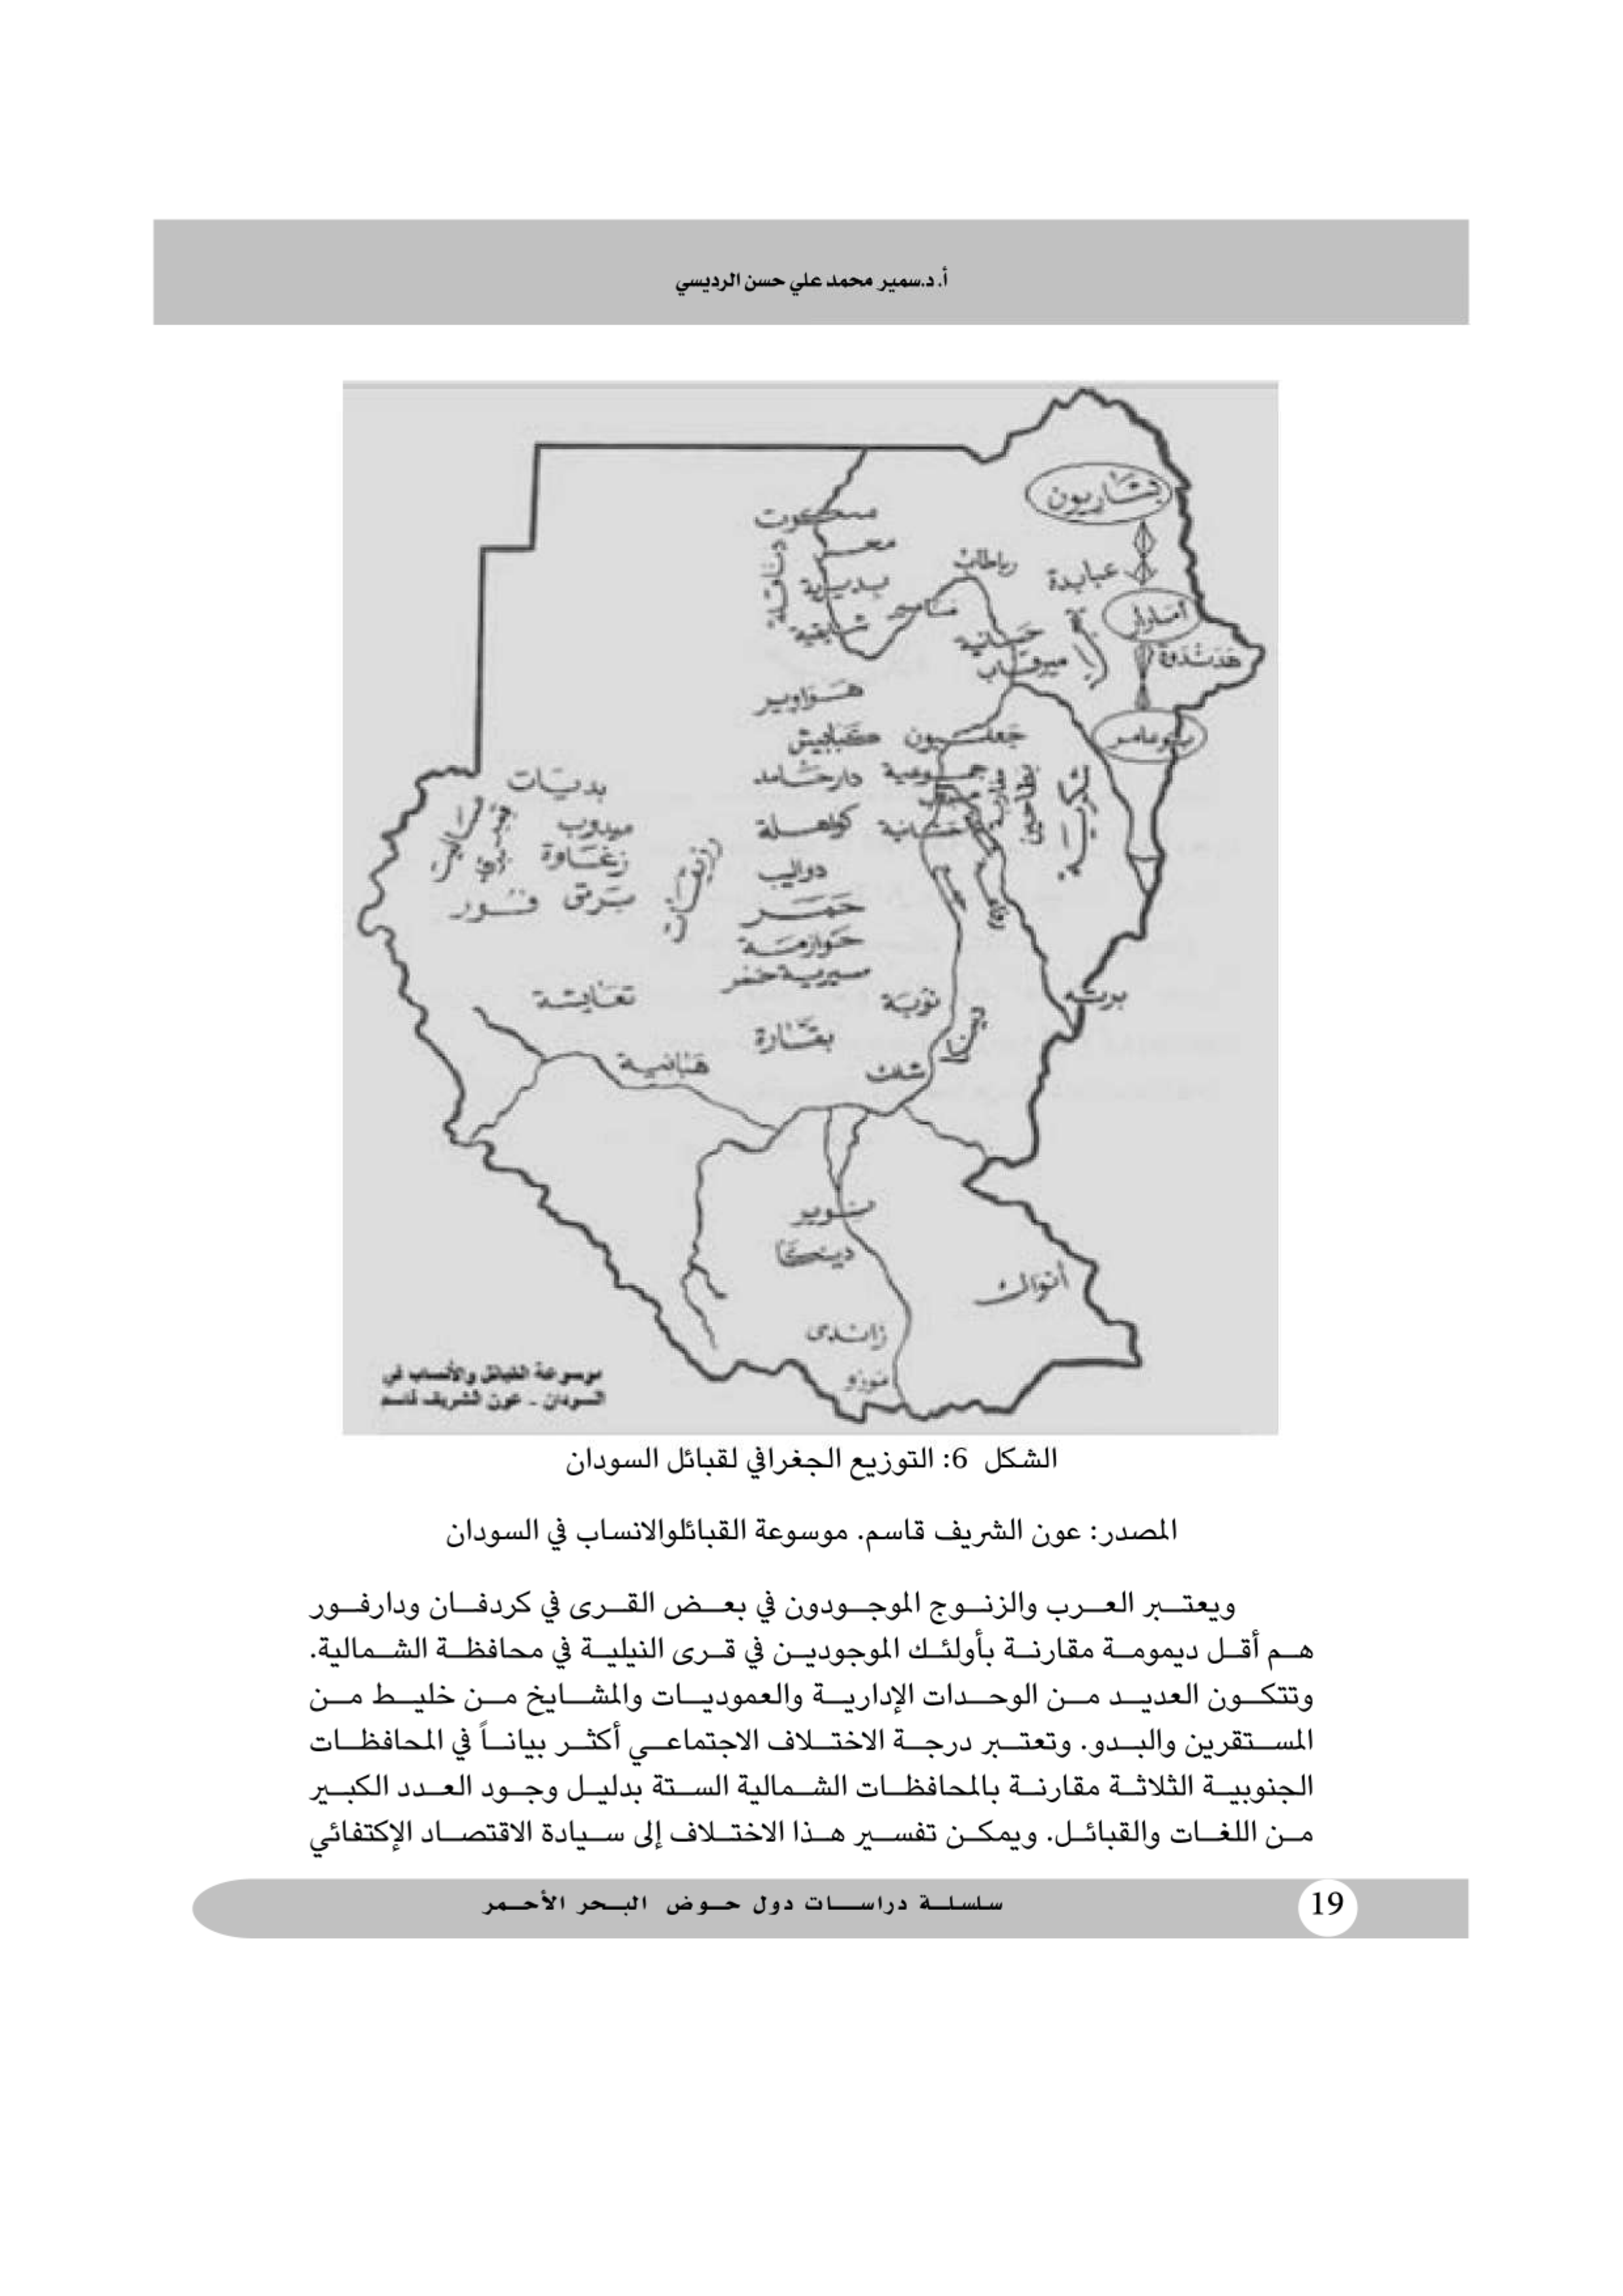 أ.د.سمير محمد علي حسن الرديسي
بشاريون
سكوت
محس
دناقلة
رباطاب
عبابدة
بديرية
مناصير
أمارار
شايقية
حسانية
ميرفاب
هدندوة
هواوير
كبابيش
جعليون
بنو عامر
دار حامد
جموعية
مغاربة
بطاحين
شكرية
بديات
كواهلة
حسانية
ميدوب
زغاوة
رزيقات
دواليب
برتى
فور
حمر
حوازمة
مسيرية حمر
تعايشة
نوبة
برته
بقارة
هبانية
شلك
دينكا
نوير
دينكا
أنواك
زاندى
موسوعة القبائل والأنساب في
السودان - عون الشريف قاسم
الشكل 6: التوزيع الجغرافي لقبائل السودان
المصدر: عون الشريف قاسم. موسوعة القبائلوالانساب في السودان
ويعتبر العرب والزنوج الموجودون في بعض القرى في كردفان ودارفور
هم أقل ديمومة مقارنة بأولئك الموجودين في قرى النيلية في محافظة الشمالية.
وتتكون العديد من الوحدات الإدارية والعموديات والمشايخ من خليط من
المستقرين والبدو. وتعتبر درجة الاختلاف الاجتماعي أكثر بياناً في المحافظات
الجنوبية الثلاثة مقارنة بالمحافظات الشمالية الستة بدليل وجود العدد الكبير
من اللغات والقبائل. ويمكن تفسير هذا الاختلاف إلى سيادة الاقتصاد الإكتفائي
سلسلة دراسات دول حوض البحر الأحمر
19